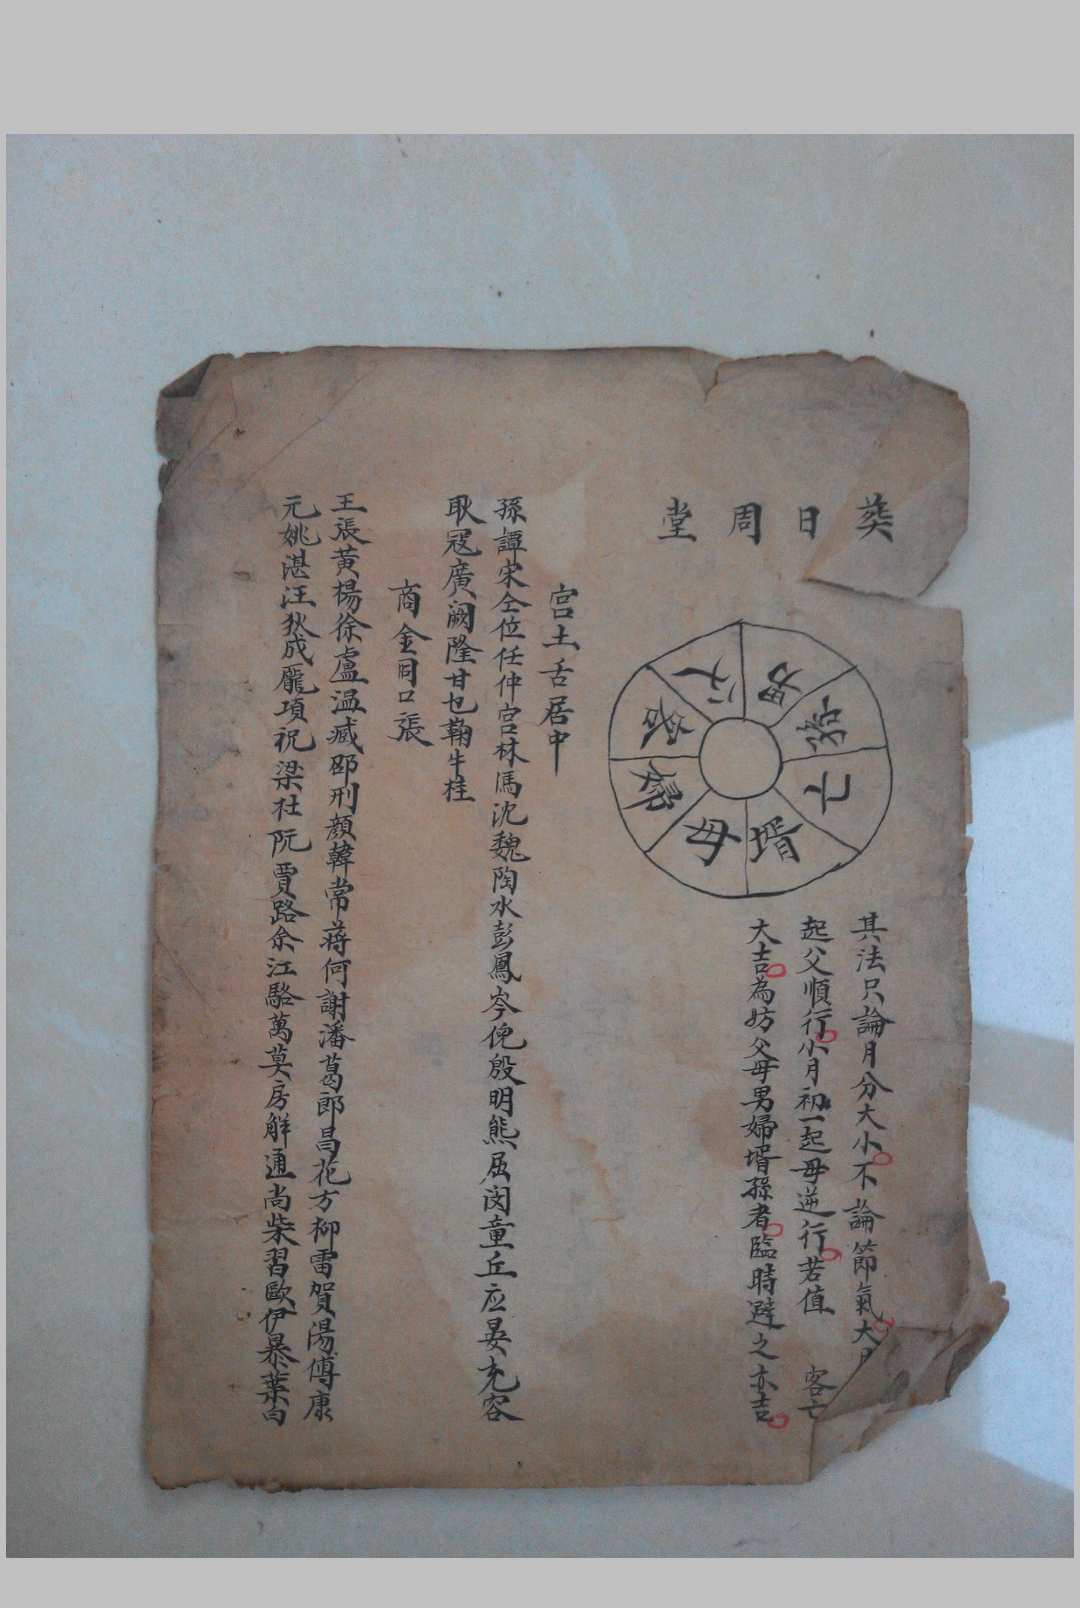 葵日周堂
男
孫
亡
壻
母
婦
客
父
其法只論月分大小不論節氣大月
起父順行小月初一起母逆行若值 客亡
大吉為妨父母男婦壻孫者臨時避之亦吉
宫土舌居中
孫譚宋仝位任仲宫林馮沈魏陶水彭鳳岑倪殷明熊屈閔童丘应晏充容
耿寇廣闞隆甘乜鞠牛桂
商金同口張
王張黄楊徐盧温臧邵刑顔韓常蒋何謝潘葛郎昌花方柳雷賀湯傅康
元姚湛汪狄成龐項祝梁杜阮賈路余江駱萬莫房解通尚柴習歐伊暴葉白